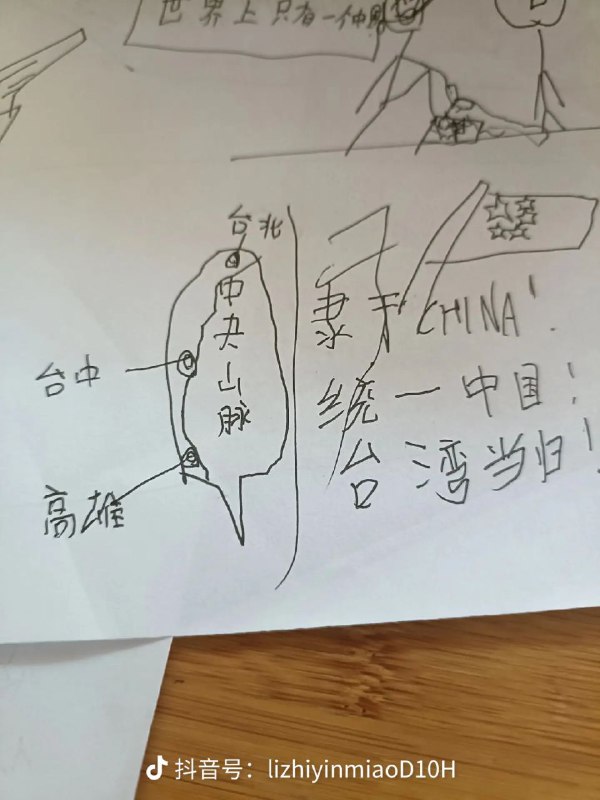 世界上只有一
台北
中央山脉
台中
高雄
CHINA!
统一中国!
台湾当归!
抖音号: lizhiyinmiaoD10H